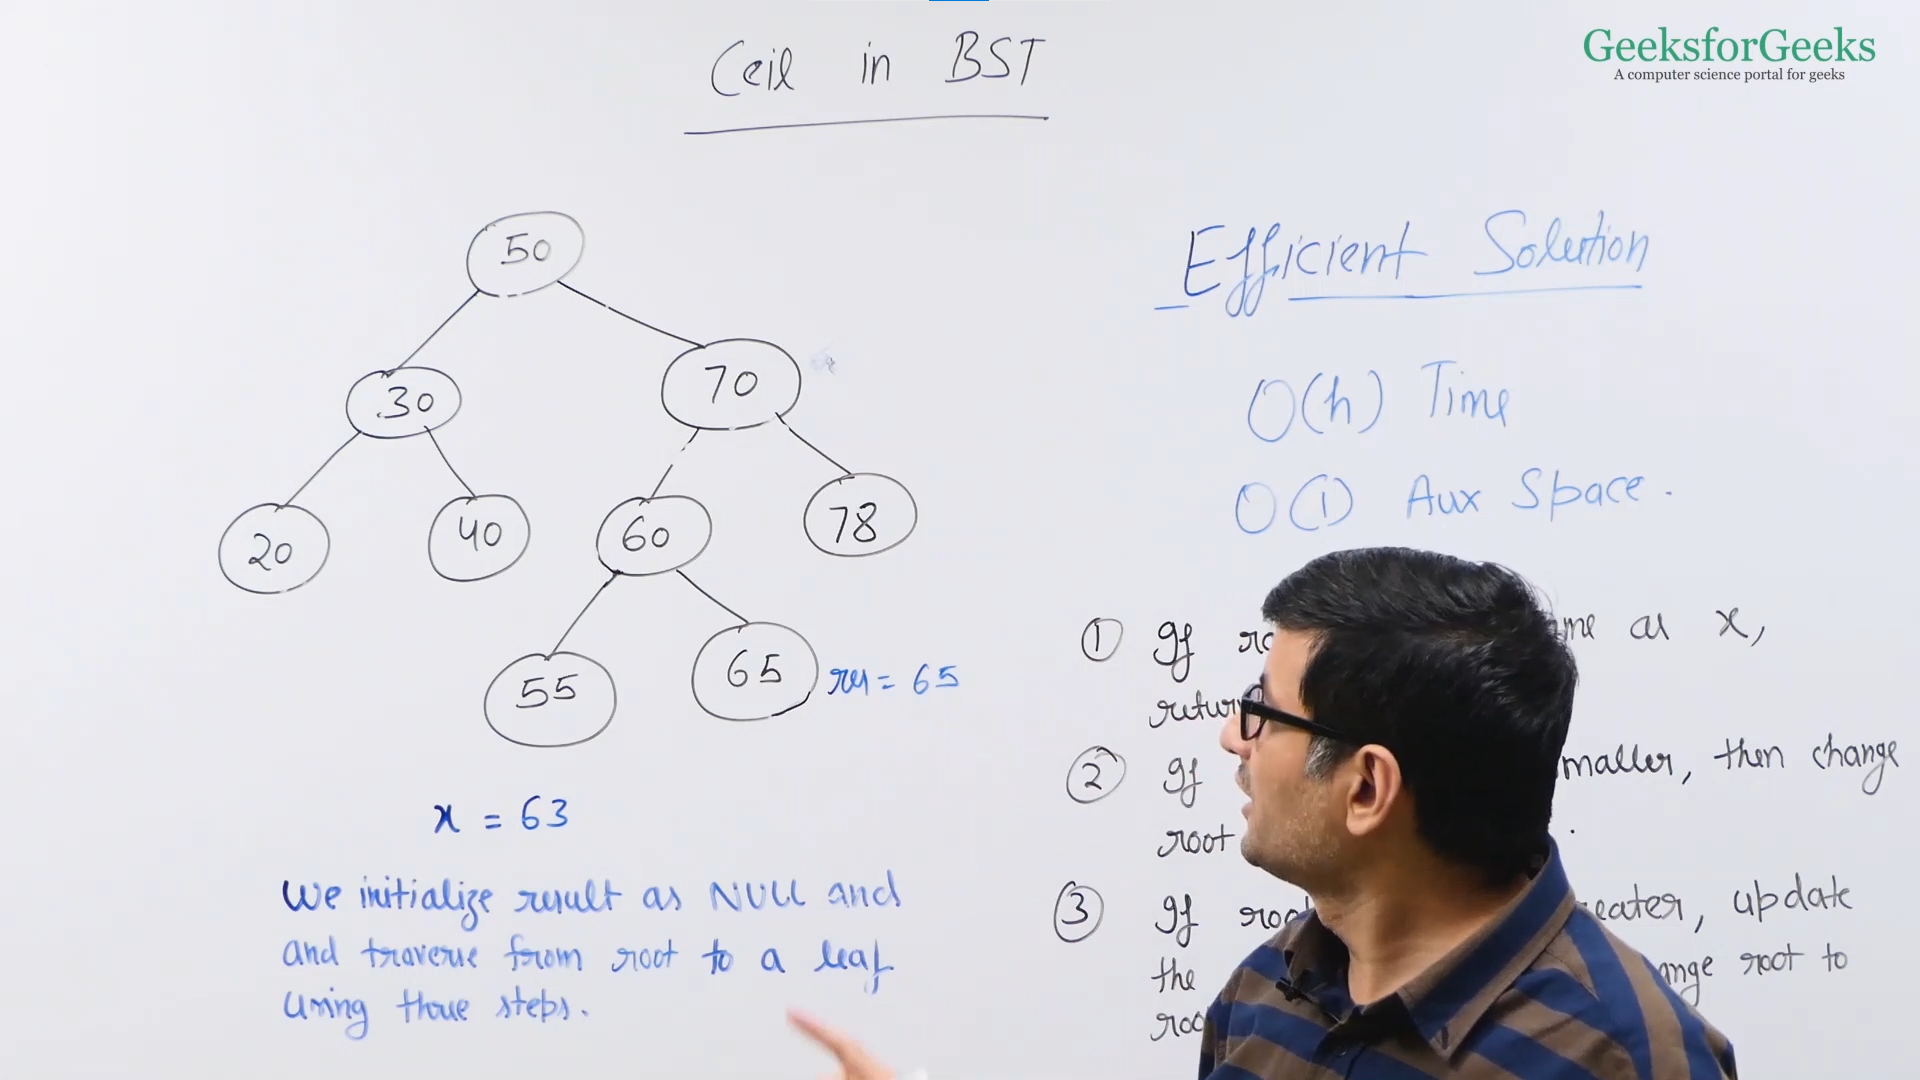 Ceil in BST
GeeksforGeeks
A computer science portal for geeks
50
30
70
20
40
60
78
55
65
res = 65
x = 63
We initialize result as NULL and
and traverse from root to a leaf
using those steps.
Efficient Solution
O(h) Time
O(1) Aux Space.
1 If as x,
2 If then change
root
3 If update
the root to